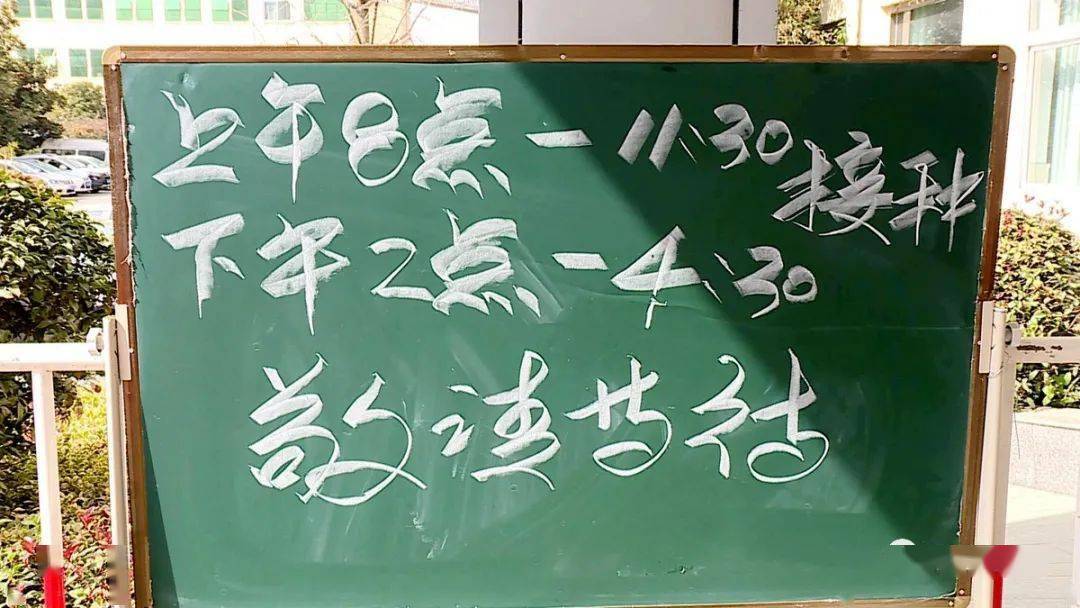 上午8点-11:30接种
下午2点-4:30
敬请等待